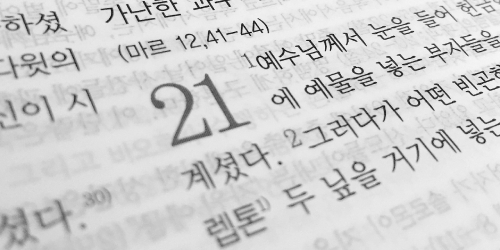 하셨
다윗의
신이 시
셨다.30)
가난한 과부
(마르 12,41-44)
21 1예수님께서 눈을 들어 헌금
에 예물을 넣는 부자들을
계셨다. 2그러다가 어떤 빈곤한
렙톤1) 두 닢을 거기에 넣는